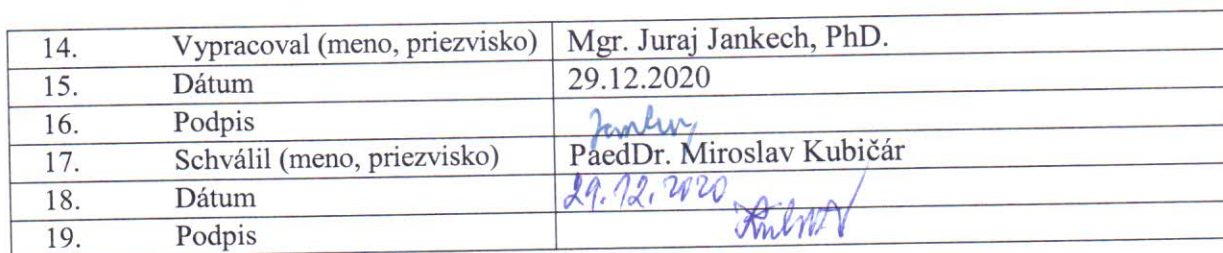 14. Vypracoval (meno, priezvisko) Mgr. Juraj Jankech, PhD.
15. Dátum 29.12.2020
16. Podpis
17. Schválil (meno, priezvisko) PaedDr. Miroslav Kubičár
18. Dátum 29.12.2020
19. Podpis